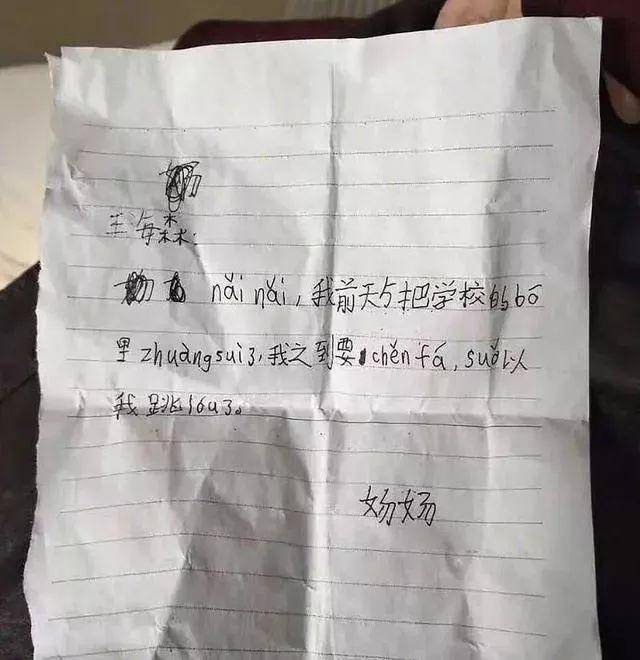 王海森:
nǎi nǎi, 我前天把学校的bō
里zhuàng suì了, 我之到要chěn fá, suǒ以
我跳lou了。